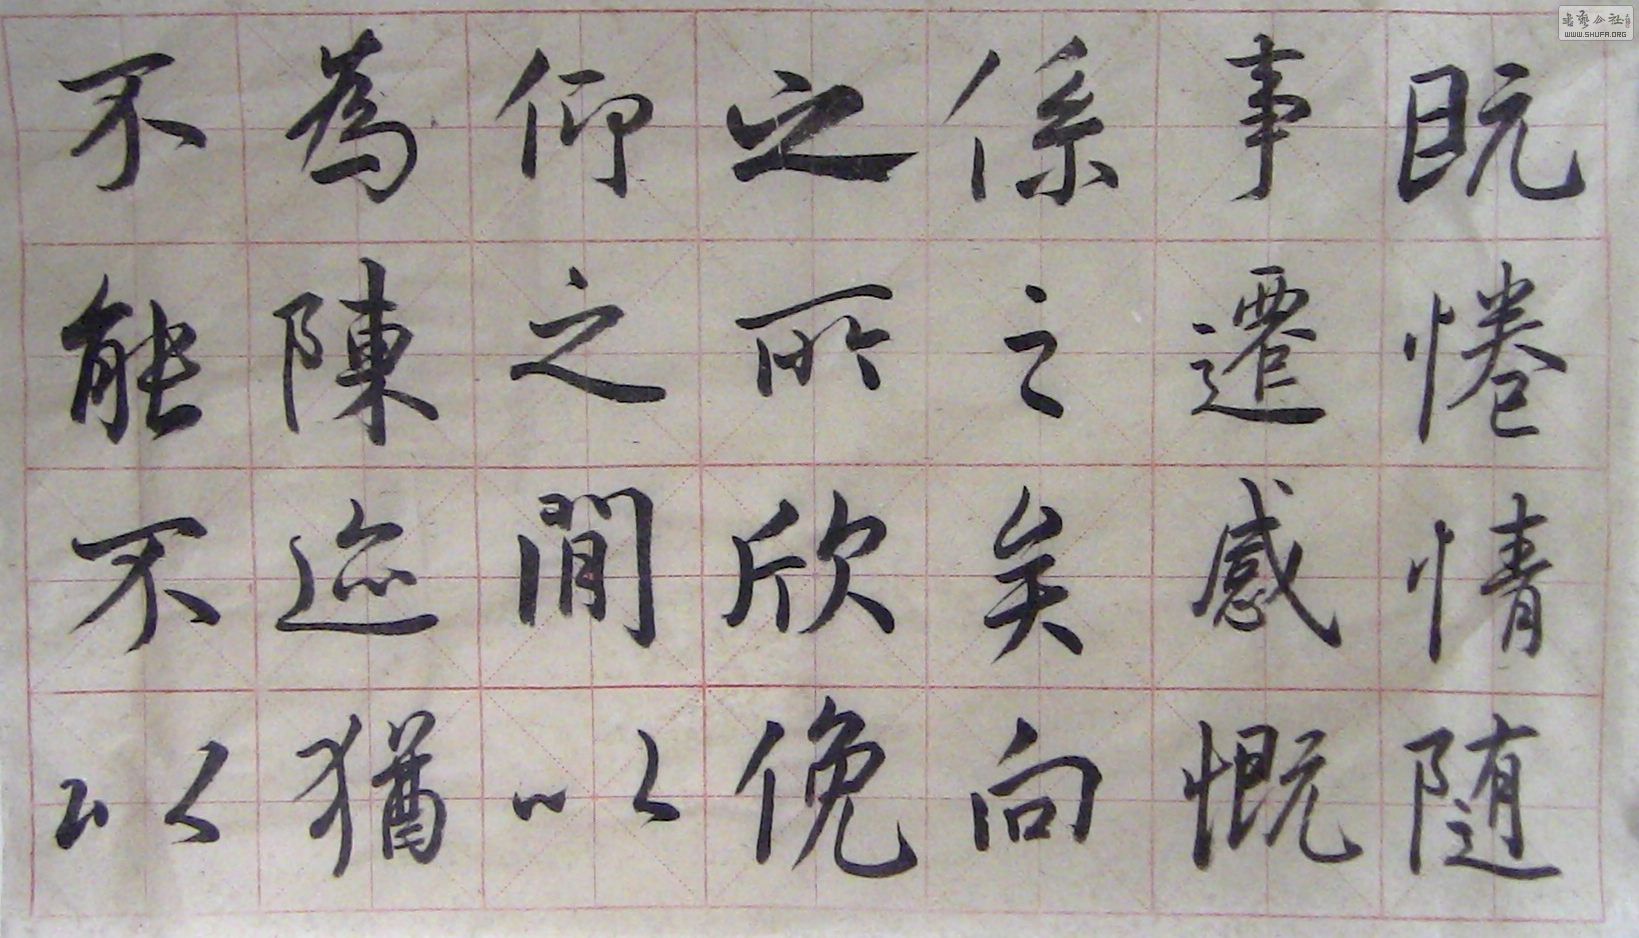 既惓情随
事遷感慨
係之矣向
之所欣俛
仰之間以
為陳迹猶
不能不以
書藝公社
WWW.SHUFA.ORG